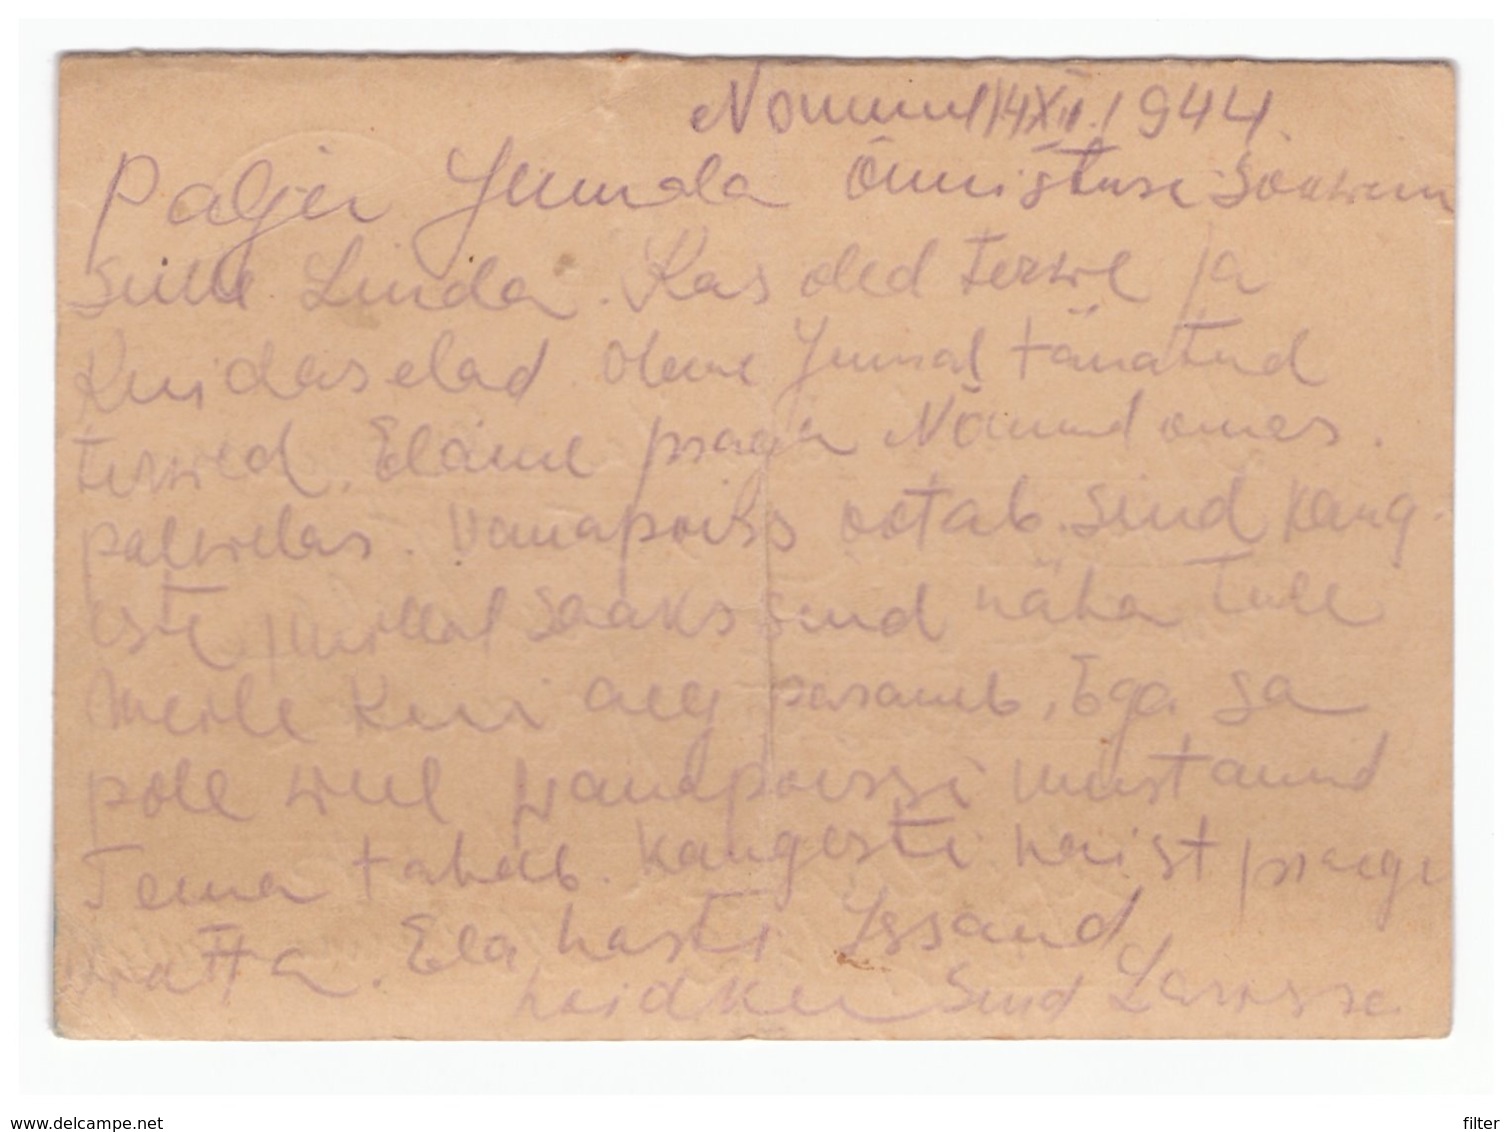 Nõmmel 14 XII. 1944.
Palju Jumala Õnnistuse Soowin
Sulle Linda. Kas oled terwe ja
Kuidas elad. Oleme Jumal tänatud
terwed. Elame praegu Nõmmel omas.
palwelas. Vanapoiss ootab Sind Kang-
este, millal saaks sind näha Tule
meile Kui aeg paraneb, Ega sa
pole weel wanapoissi unustanud
Tema tahab. Kangesti naist praegu
wõtta. Ela hästi Issand
hoidku Sind
www.delcampe.net
filter